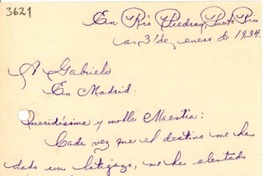 3629
En Río Piedras, Puerto Rico
a 31 de enero de 1934.
A Gabriela
En Madrid.
Queridísima y noble Maestra:
Cada vez que el destino me ha
dado un latigazo, me ha alentado